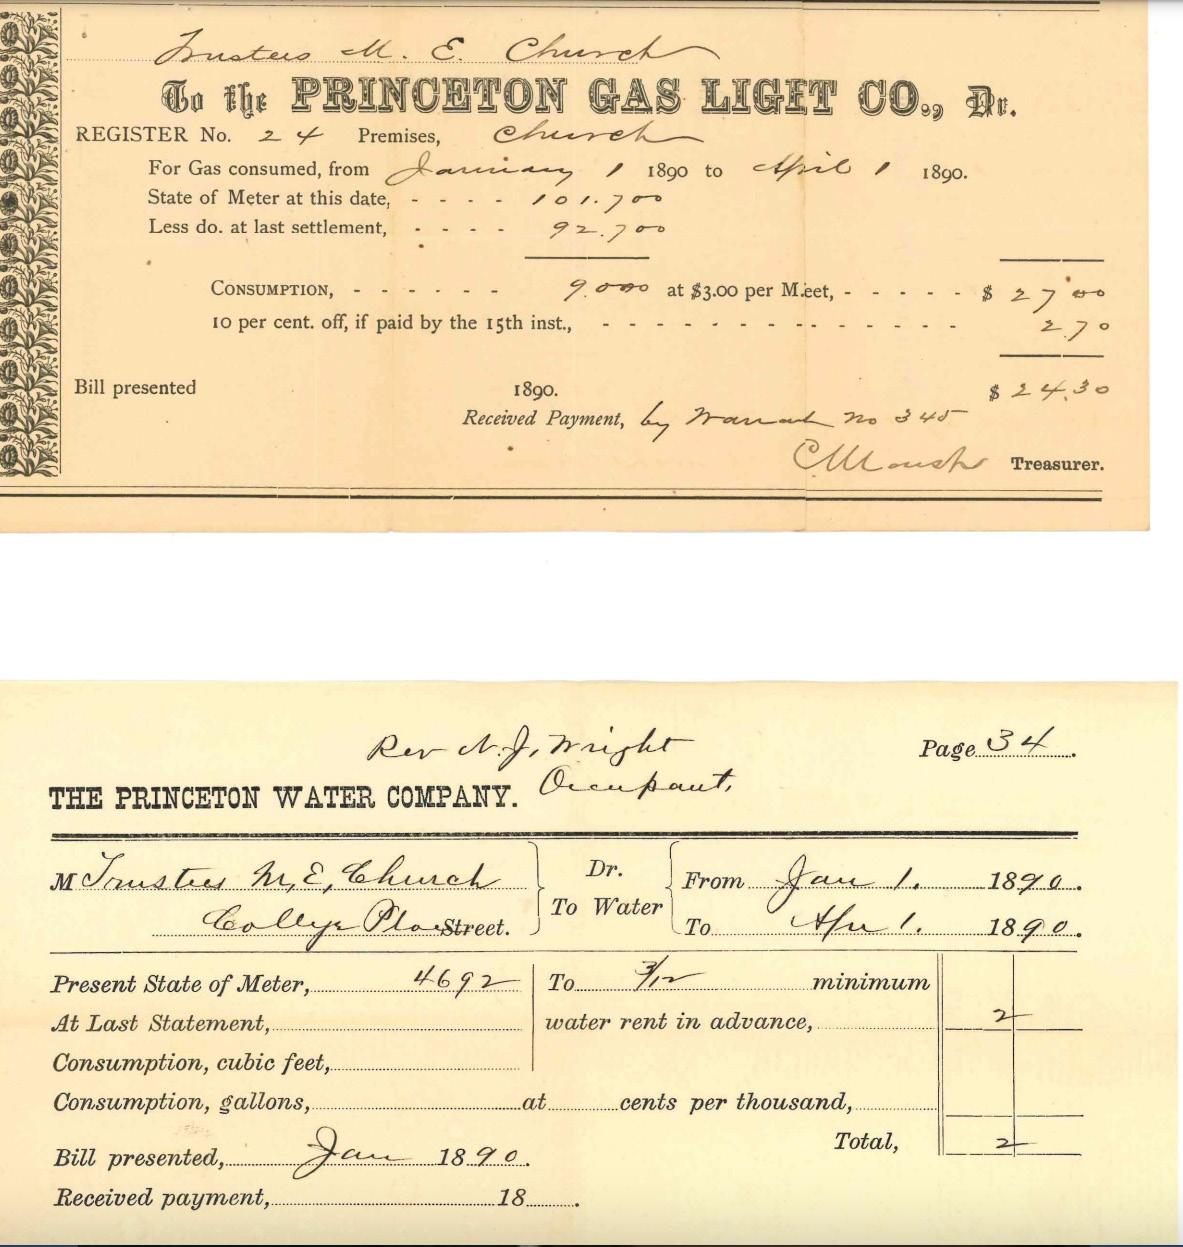 Trustees M. E. Church
To the PRINCETON GAS LIGHT CO., Dr.
REGISTER No. 24 Premises, Church
For Gas consumed, from January 1 1890 to April 1 1890.
State of Meter at this date, - - - - 101.700
Less do. at last settlement, - - - - 92.700
CONSUMPTION, - - - - - - 9.000 at $3.00 per M.eet, - - - - - $ 27 00
10 per cent. off, if paid by the 15th inst., - - - - - - - - - - - - - - 2.70
Bill presented 1890. $ 24.30
Received Payment, by Warrant No 345
Treasurer.
Rev N. J. Wright Page 34.
THE PRINCETON WATER COMPANY. Occupant.
M Trustees M, E, Church Dr. From Jan 1. 1890.
College Place Street. To Water To Apr 1. 1890.
Present State of Meter, 4692 To 3/12 minimum
At Last Statement, water rent in advance, 2
Consumption, cubic feet,
Consumption, gallons, at cents per thousand,
Total, 2
Bill presented, Jan 1890.
Received payment, 18 .